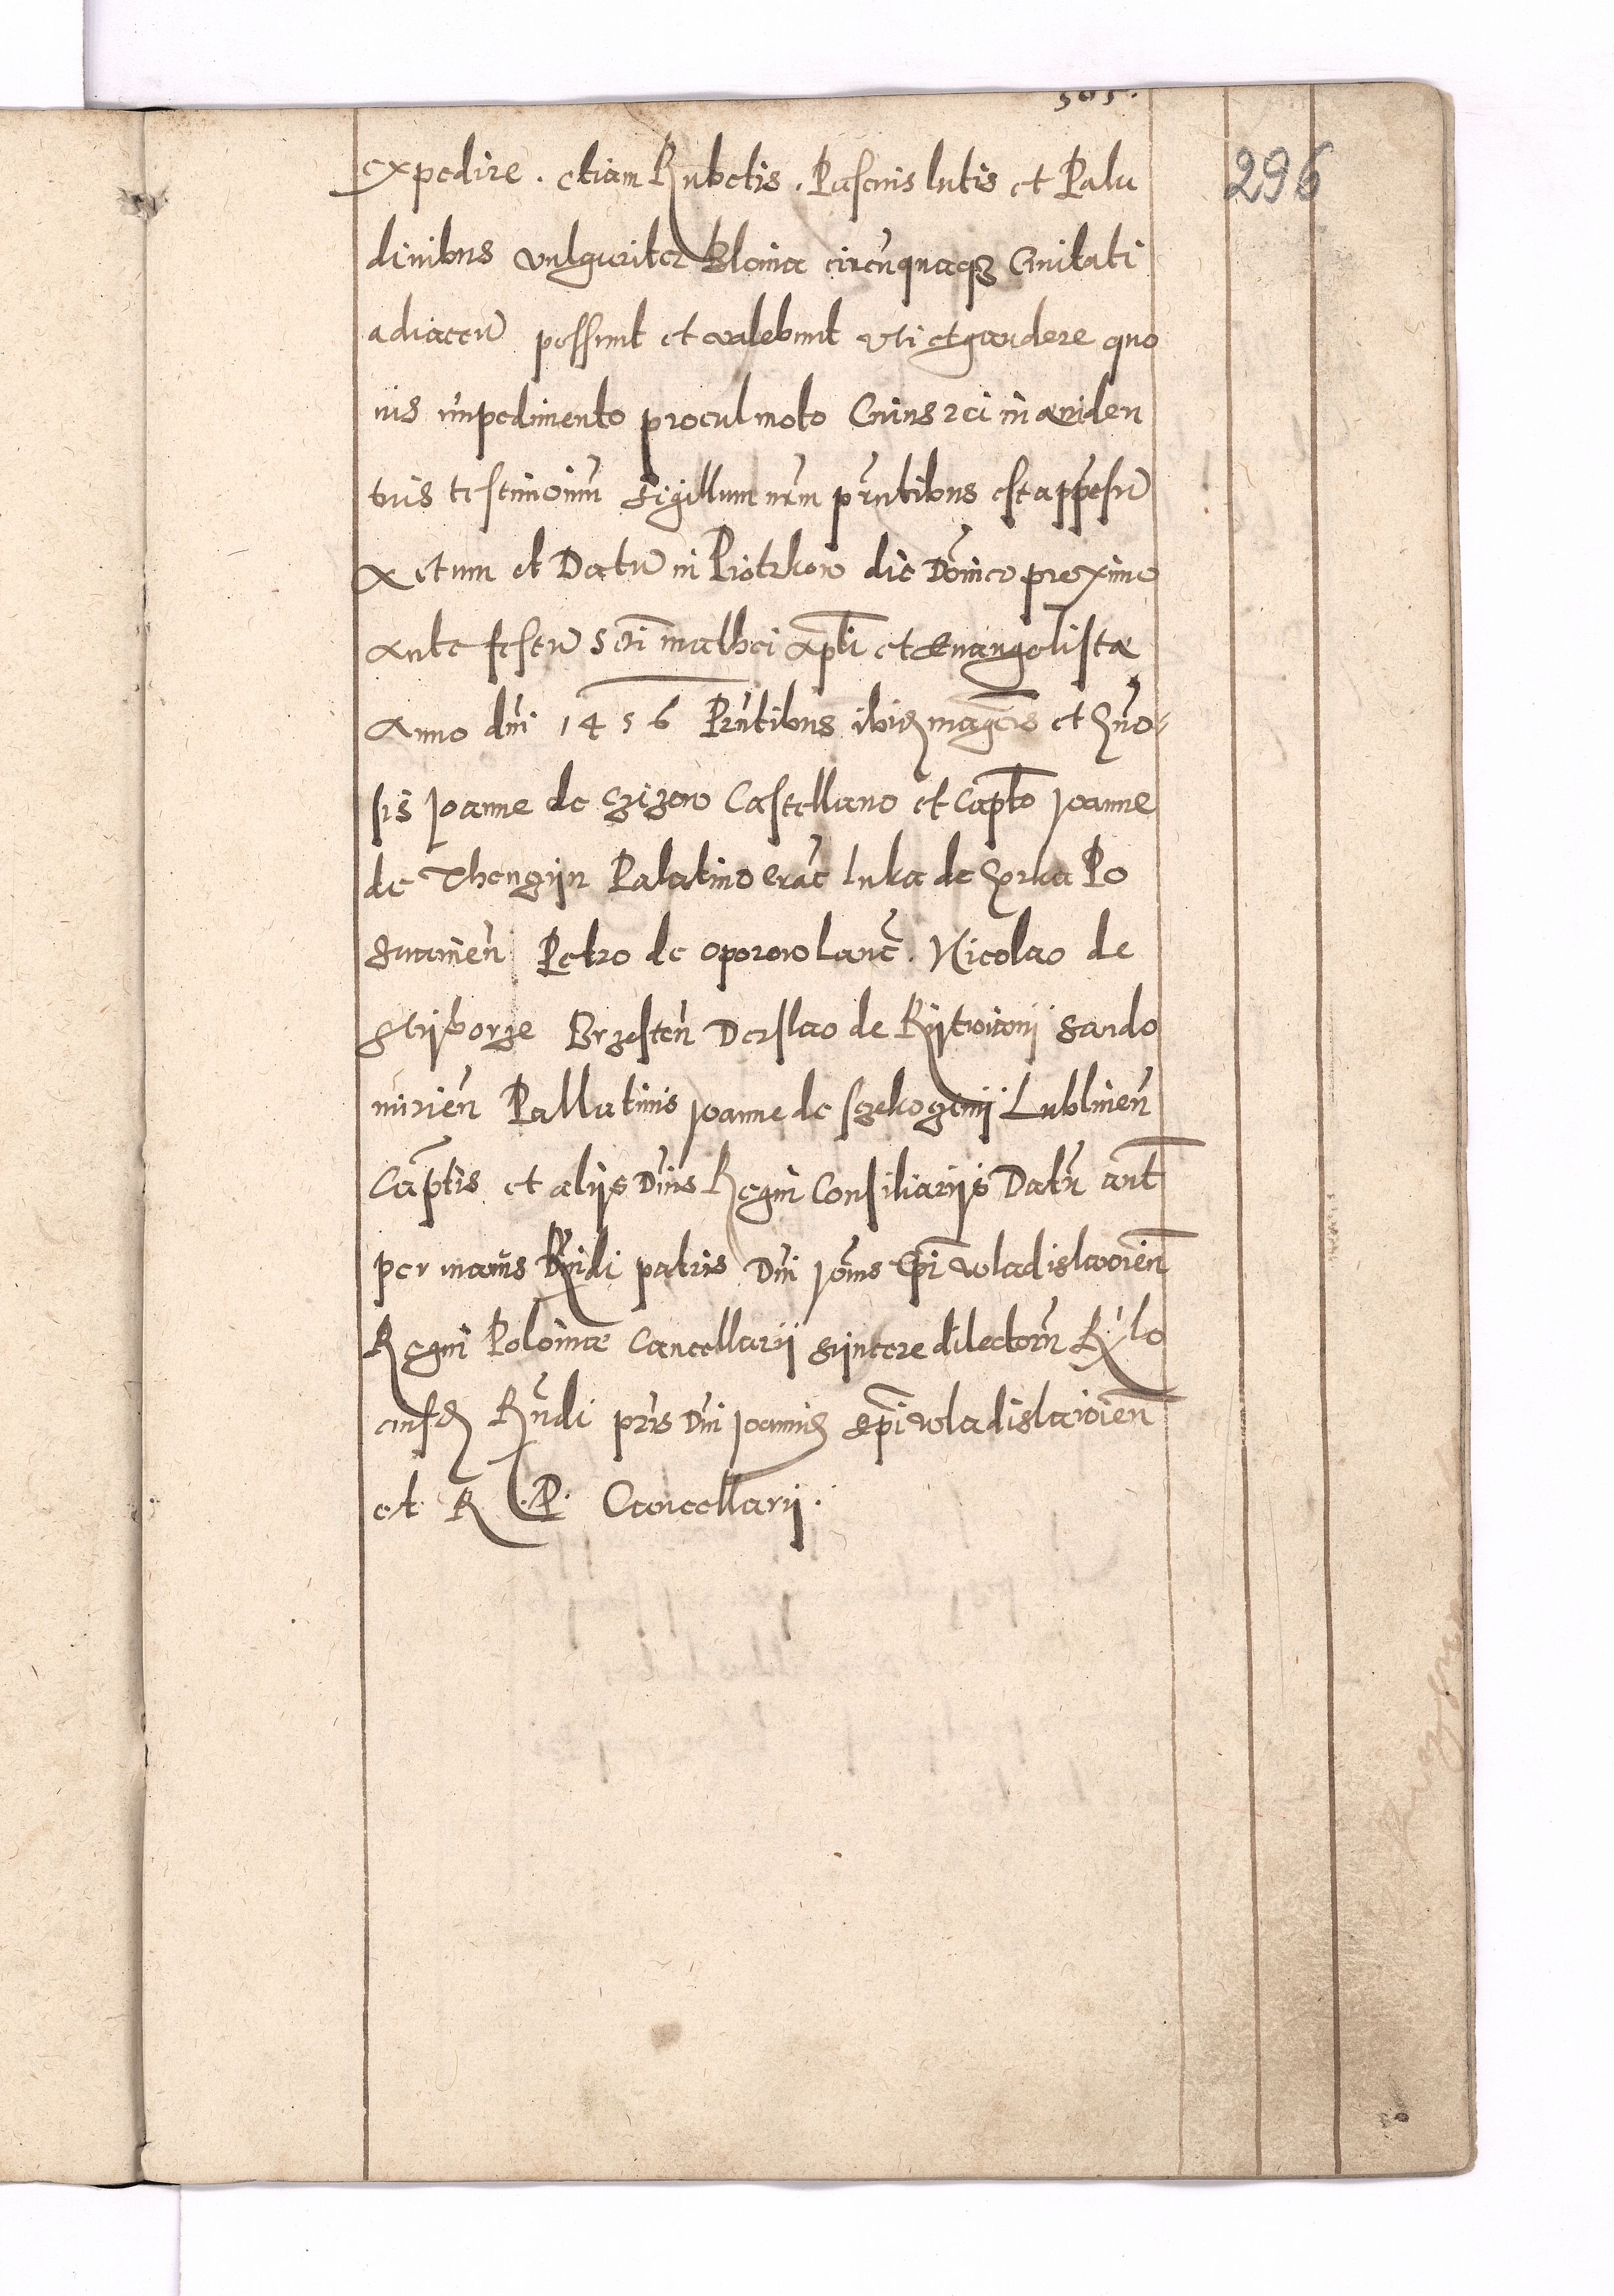 505.
296
expedire. etiam Rubetis. Pascuis lutis et Palu
dinibus vulgariter Blonia circūquaqз Ciuitati
adiaceñ possunt et valebunt vti et gaudere quo
uis impedimento procul moto Cuius rei in æuiden
tius testimoniū Sigillum nr̄m pr̄ntibus est appēsū
Actum et Datū in Piotrkow die Dominico proximo
Ante festū Sc̄ti mathei Ap̄li et Euangelistæ
Anno dn̄i 1456 Pr̄ntibus ibidē maḡcis et gn̄o-
sis Joanne de Czizow Castellano et Cap̄to Joanne
de Thengijn Palatino Crac̄ Luka de Gorka Po
snanien̄ Petro de Oporow Lanc̄. Nicolao de
Sczijborze Brzesten̄ Derslao de Rijtwianij Sando
mirien̄ Pallatinis Joanne de Szekoczinij Lublinen̄
Cap̄tis et alijs Dn̄is Regni Consiliarijs Datū aut̄
per manus Rn̄di patris Dn̄i Jo̅nis Ep̄i Wladislawien̄
Regni Poloniæ Cancellarij sijncere dilectorū R̄lo
eiusdē Rn̄di pr̄is Dn̄i Joannis Ep̄i Wladislawien̄
et R. P. Cancellarij.